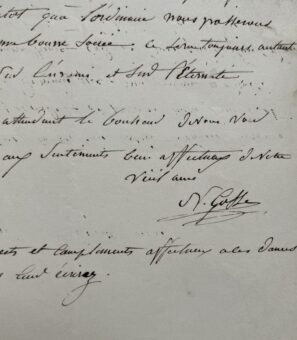 tôt qu'à l'ordinaire nous passerons
une bonne soirée. ce sera toujours autant
sur l'ennui et sur l'éternité
attendant le bonheur de vous voir
aux sentiments bien affectueux de votre
vieil ami
N. Gosse
et compliments affectueux à les dames